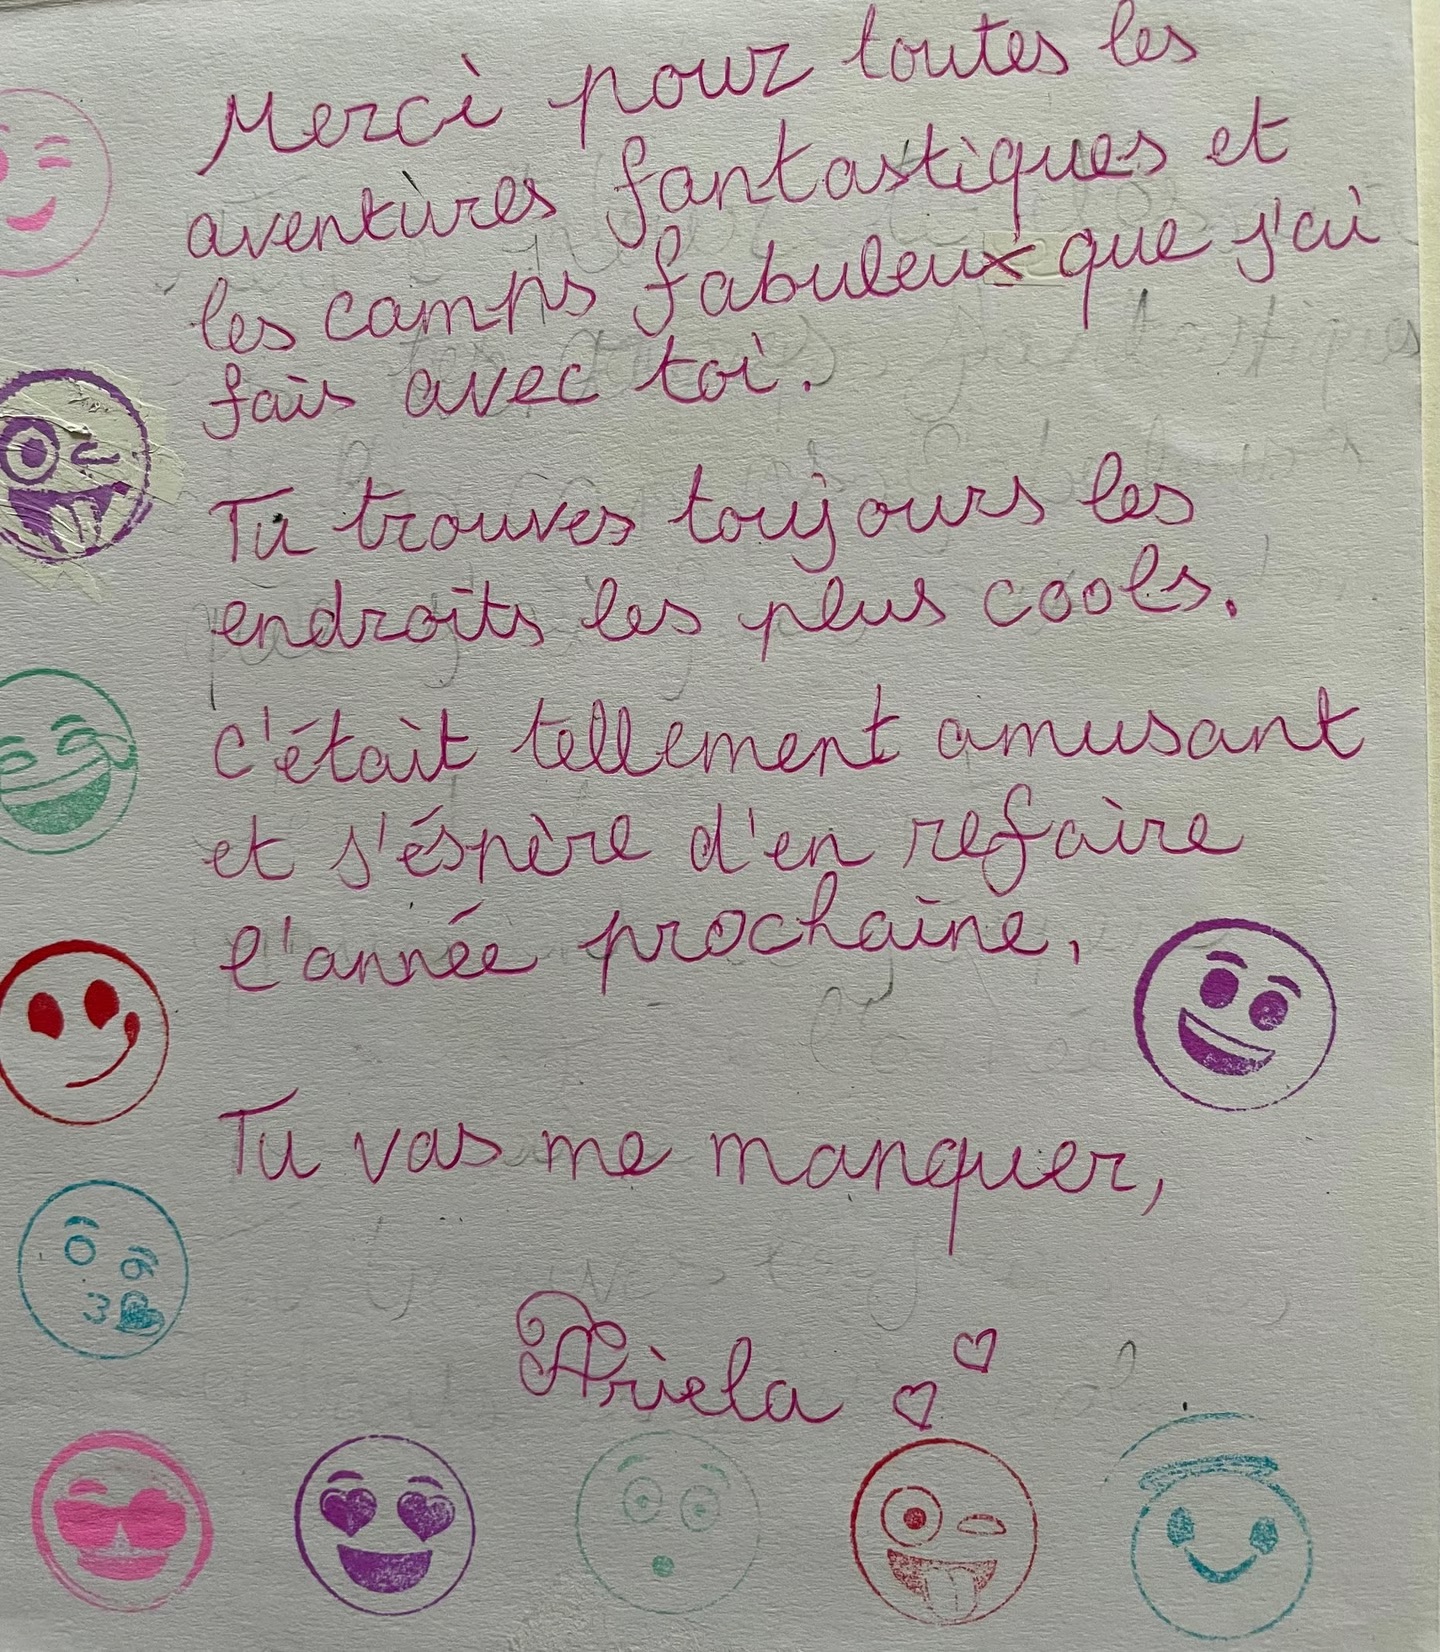 Merci pour toutes les
aventures fantastiques et
les camps fabuleux que j'ai
fais avec toi.
Tu trouves toujours les
endroits les plus cools.
C'était tellement amusant
et j'éspère d'en refaire
l'année prochaine,
Tu vas me manquer,
Ariela